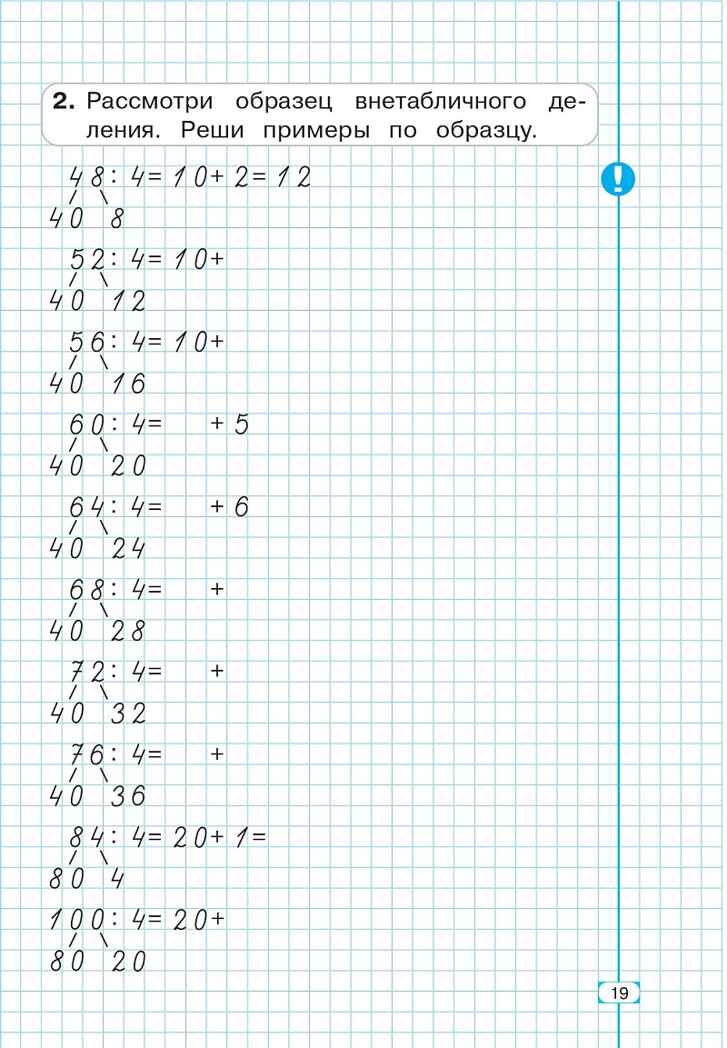 2. Рассмотри образец внетабличного де-
ления. Реши примеры по образцу.
48: 4= 10+ 2= 12
40 8
52: 4= 10+
40 12
56: 4= 10+
40 16
60: 4= + 5
40 20
64: 4= + 6
40 24
68: 4= +
40 28
72: 4= +
40 32
76: 4= +
40 36
84: 4= 20+ 1=
80 4
100: 4= 20+
80 20
!
19